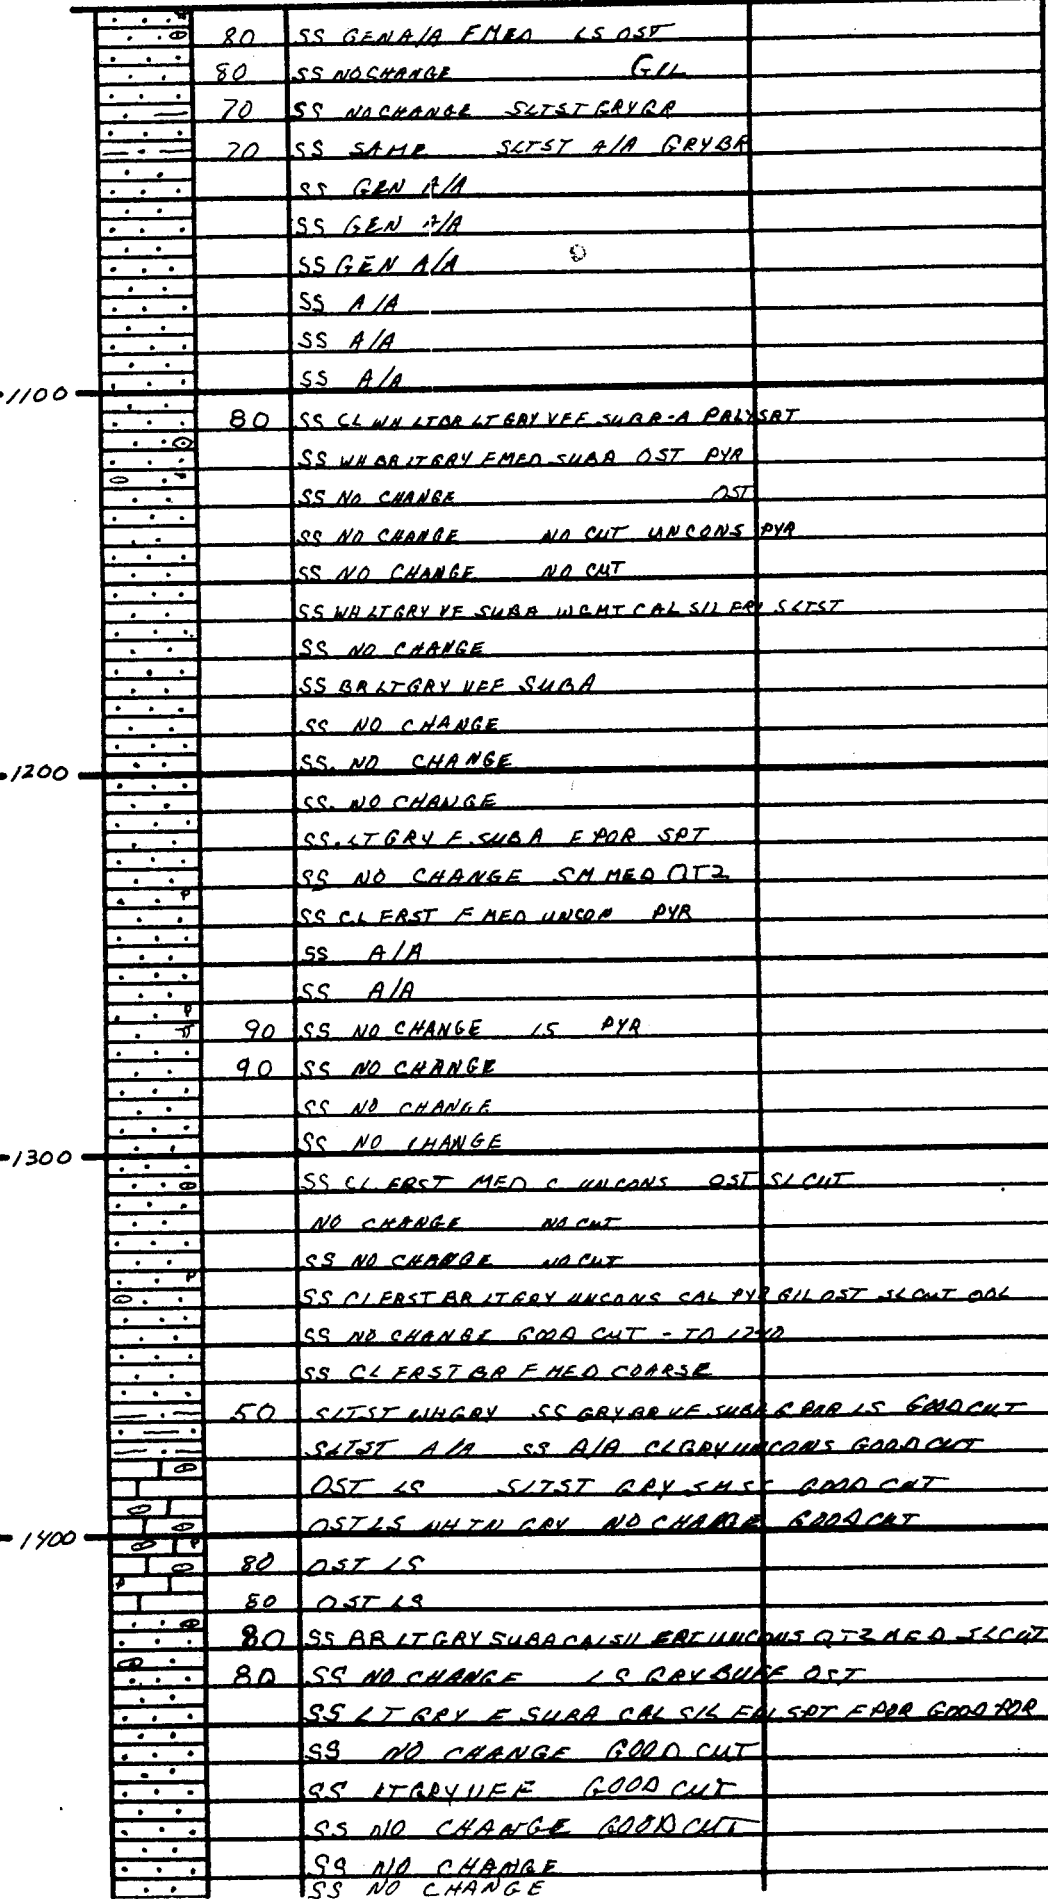 80 SS GEN A/A F MED LS OST
80 SS NO CHANGE GIL
70 SS NO CHANGE SLTST GRYGR
70 SS SAME SLTST A/A GRYBR
SS GEN A/A
SS GEN A/A
SS GEN A/A
SS A/A
SS A/A
SS A/A
1100
80 SS CL WH LTBR LT GRY VFF SUBR-A SRT
SS WH BR LTGRY F MED SUBA OST PYR
SS NO CHANGE OST
SS NO CHANGE NO CUT UNCONS PYR
SS NO CHANGE NO CUT
SS WH LTGRY VF SUBA WCMT CAL SIL FRI SLTST
SS NO CHANGE
SS BR LTGRY VFF SUBA
SS NO CHANGE
SS. NO CHANGE
1200
SS. NO CHANGE
SS. LT GRY F SUBA F POR SRT
SS NO CHANGE SM MED QTZ
SS CL FRST F MED UNCON PYR
SS A/A
SS A/A
90 SS NO CHANGE LS PYR
90 SS NO CHANGE
SS NO CHANGE
SS NO CHANGE
1300
SS CL FRST MED C UNCONS OST SL CUT
NO CHANGE NO CUT
SS NO CHANGE NO CUT
SS CL FRST BR LTGRY UNCONS CAL PYR GIL OST SL CUT OOL
SS NO CHANGE GOOD CUT - TO
SS CL FRST BR F MED COARSE
50 SLTST WHGRY SS GRY BR VF SUBA LS GOOD CUT
SLTST A/A SS A/A CLGRY UNCONS GOOD CUT
OST LS SLTST GRY GOOD CUT
OST LS WH TN GRY NO CHANGE GOOD CUT
1400
80 OST LS
80 OST LS
80 SS BR LT GRY SUBA CAL SIL FRI UNCONS QTZ MED SLCUT
80 SS NO CHANGE LS GRY BUFF OST
SS LT GRY F SUBA CAL SIL FRI SRT F POR GOOD POR
SS NO CHANGE GOOD CUT
SS LTGRY VFF GOOD CUT
SS NO CHANGE GOOD CUT
SS NO CHANGE
SS NO CHANGE